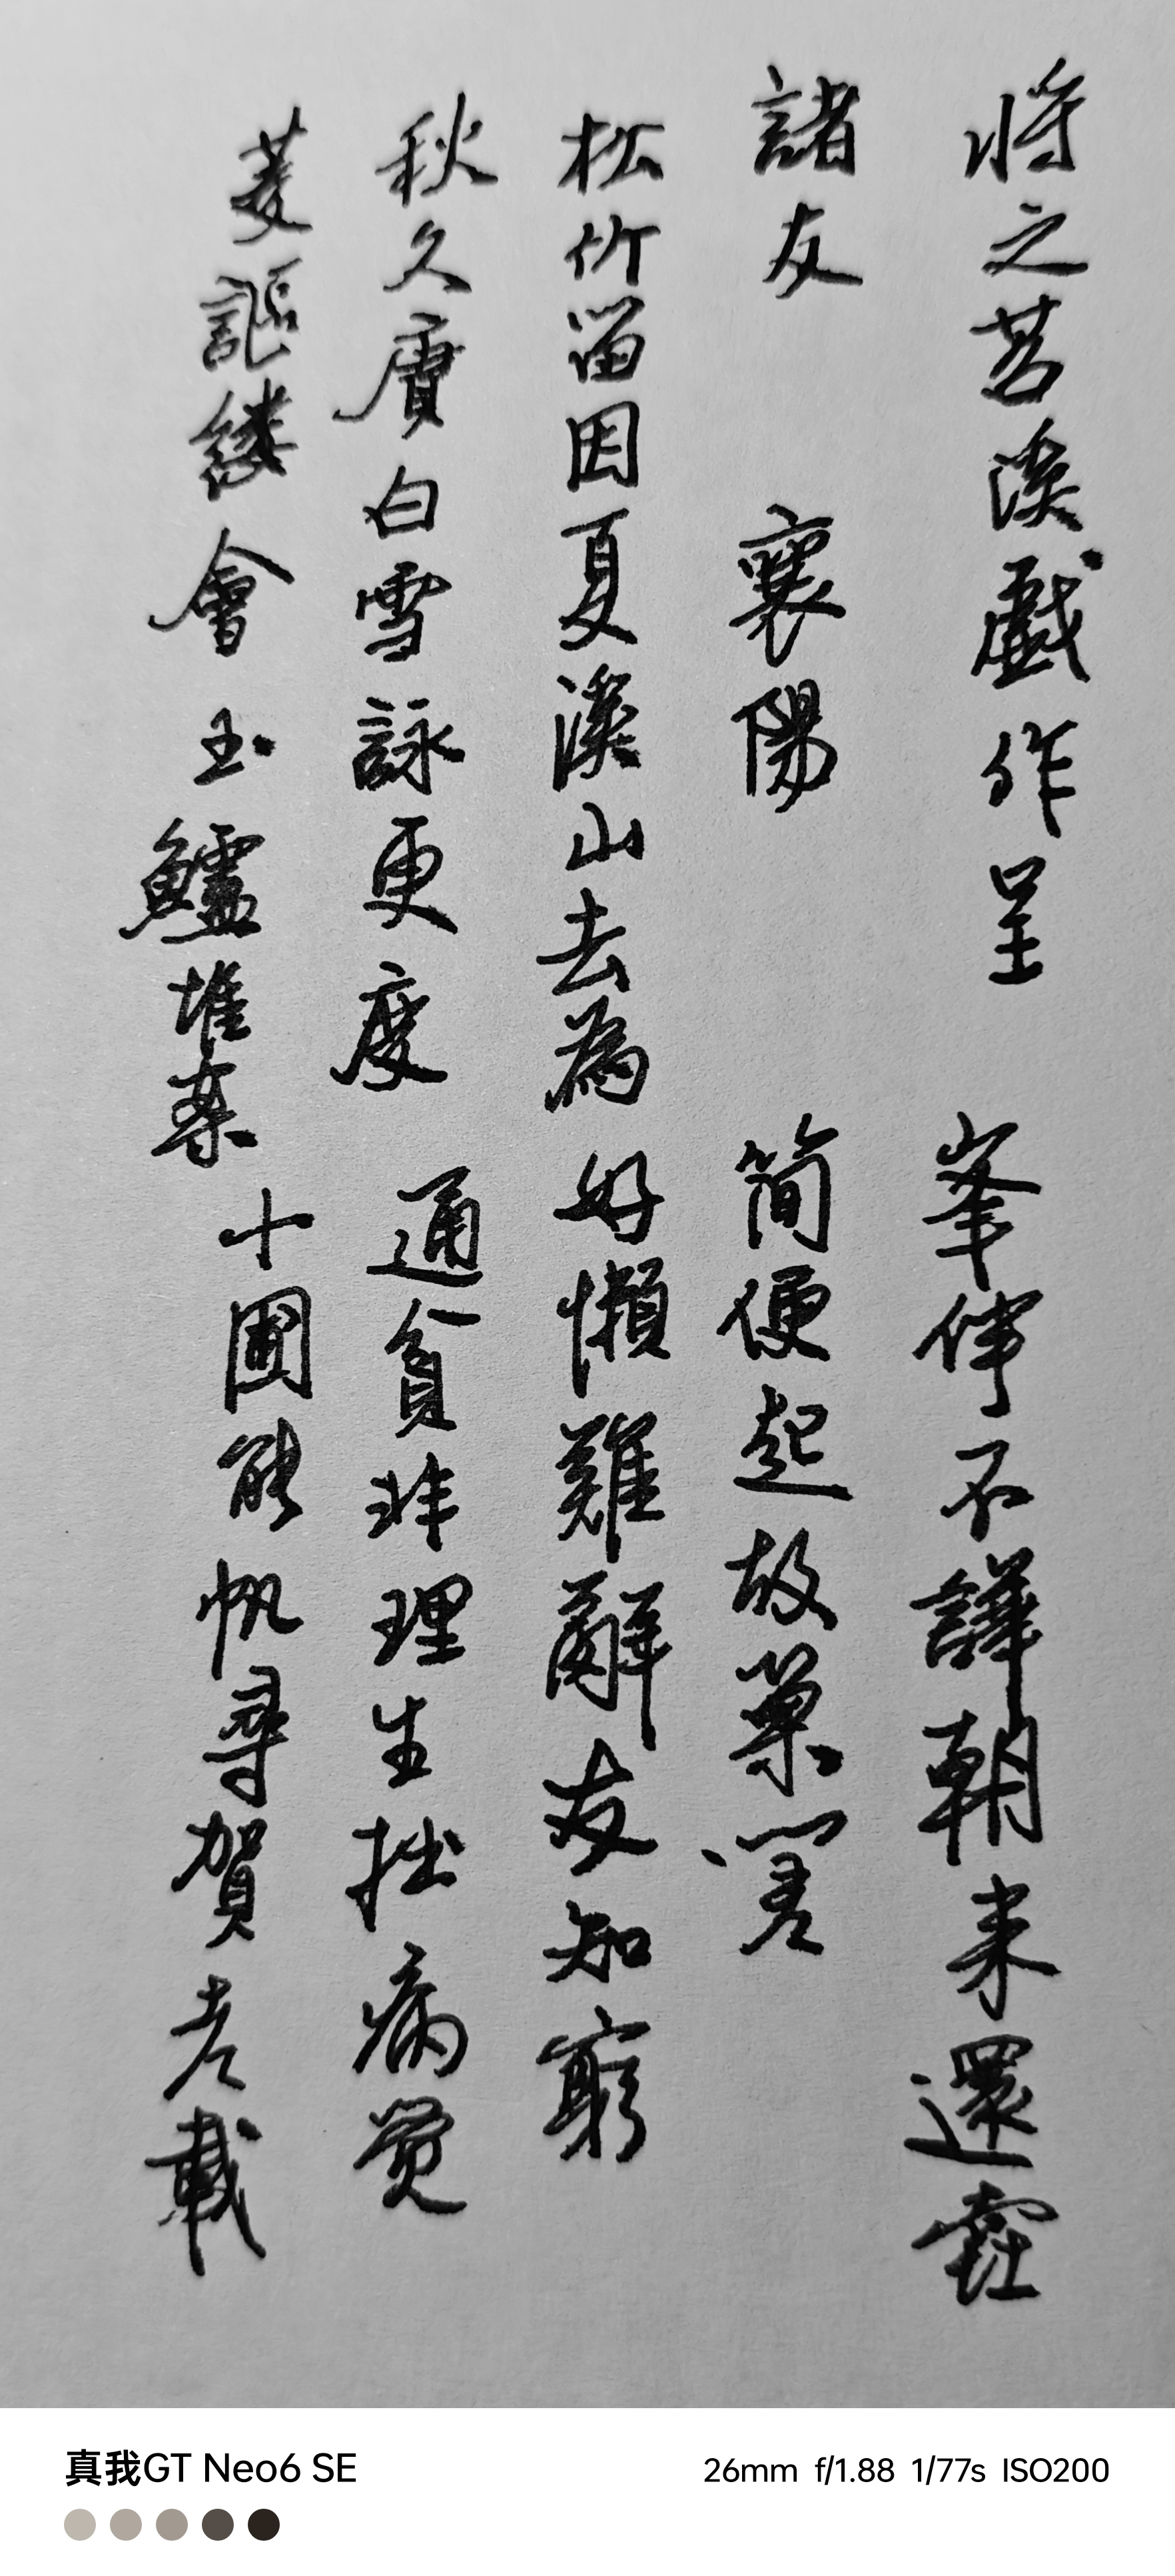 將之苕溪戲作呈
諸友 襄陽
松竹留因夏溪山去為
秋久賡白雪詠更度
菱謳縷會玉鱸堆案
峯伴不譁朝来還蠹
简便起故巢嗟
好懶難辭友知窮
通貧非理生拙病觉
小圃能帆尋賀老載
真我GT Neo6 SE
26mm f/1.88 1/77s ISO200